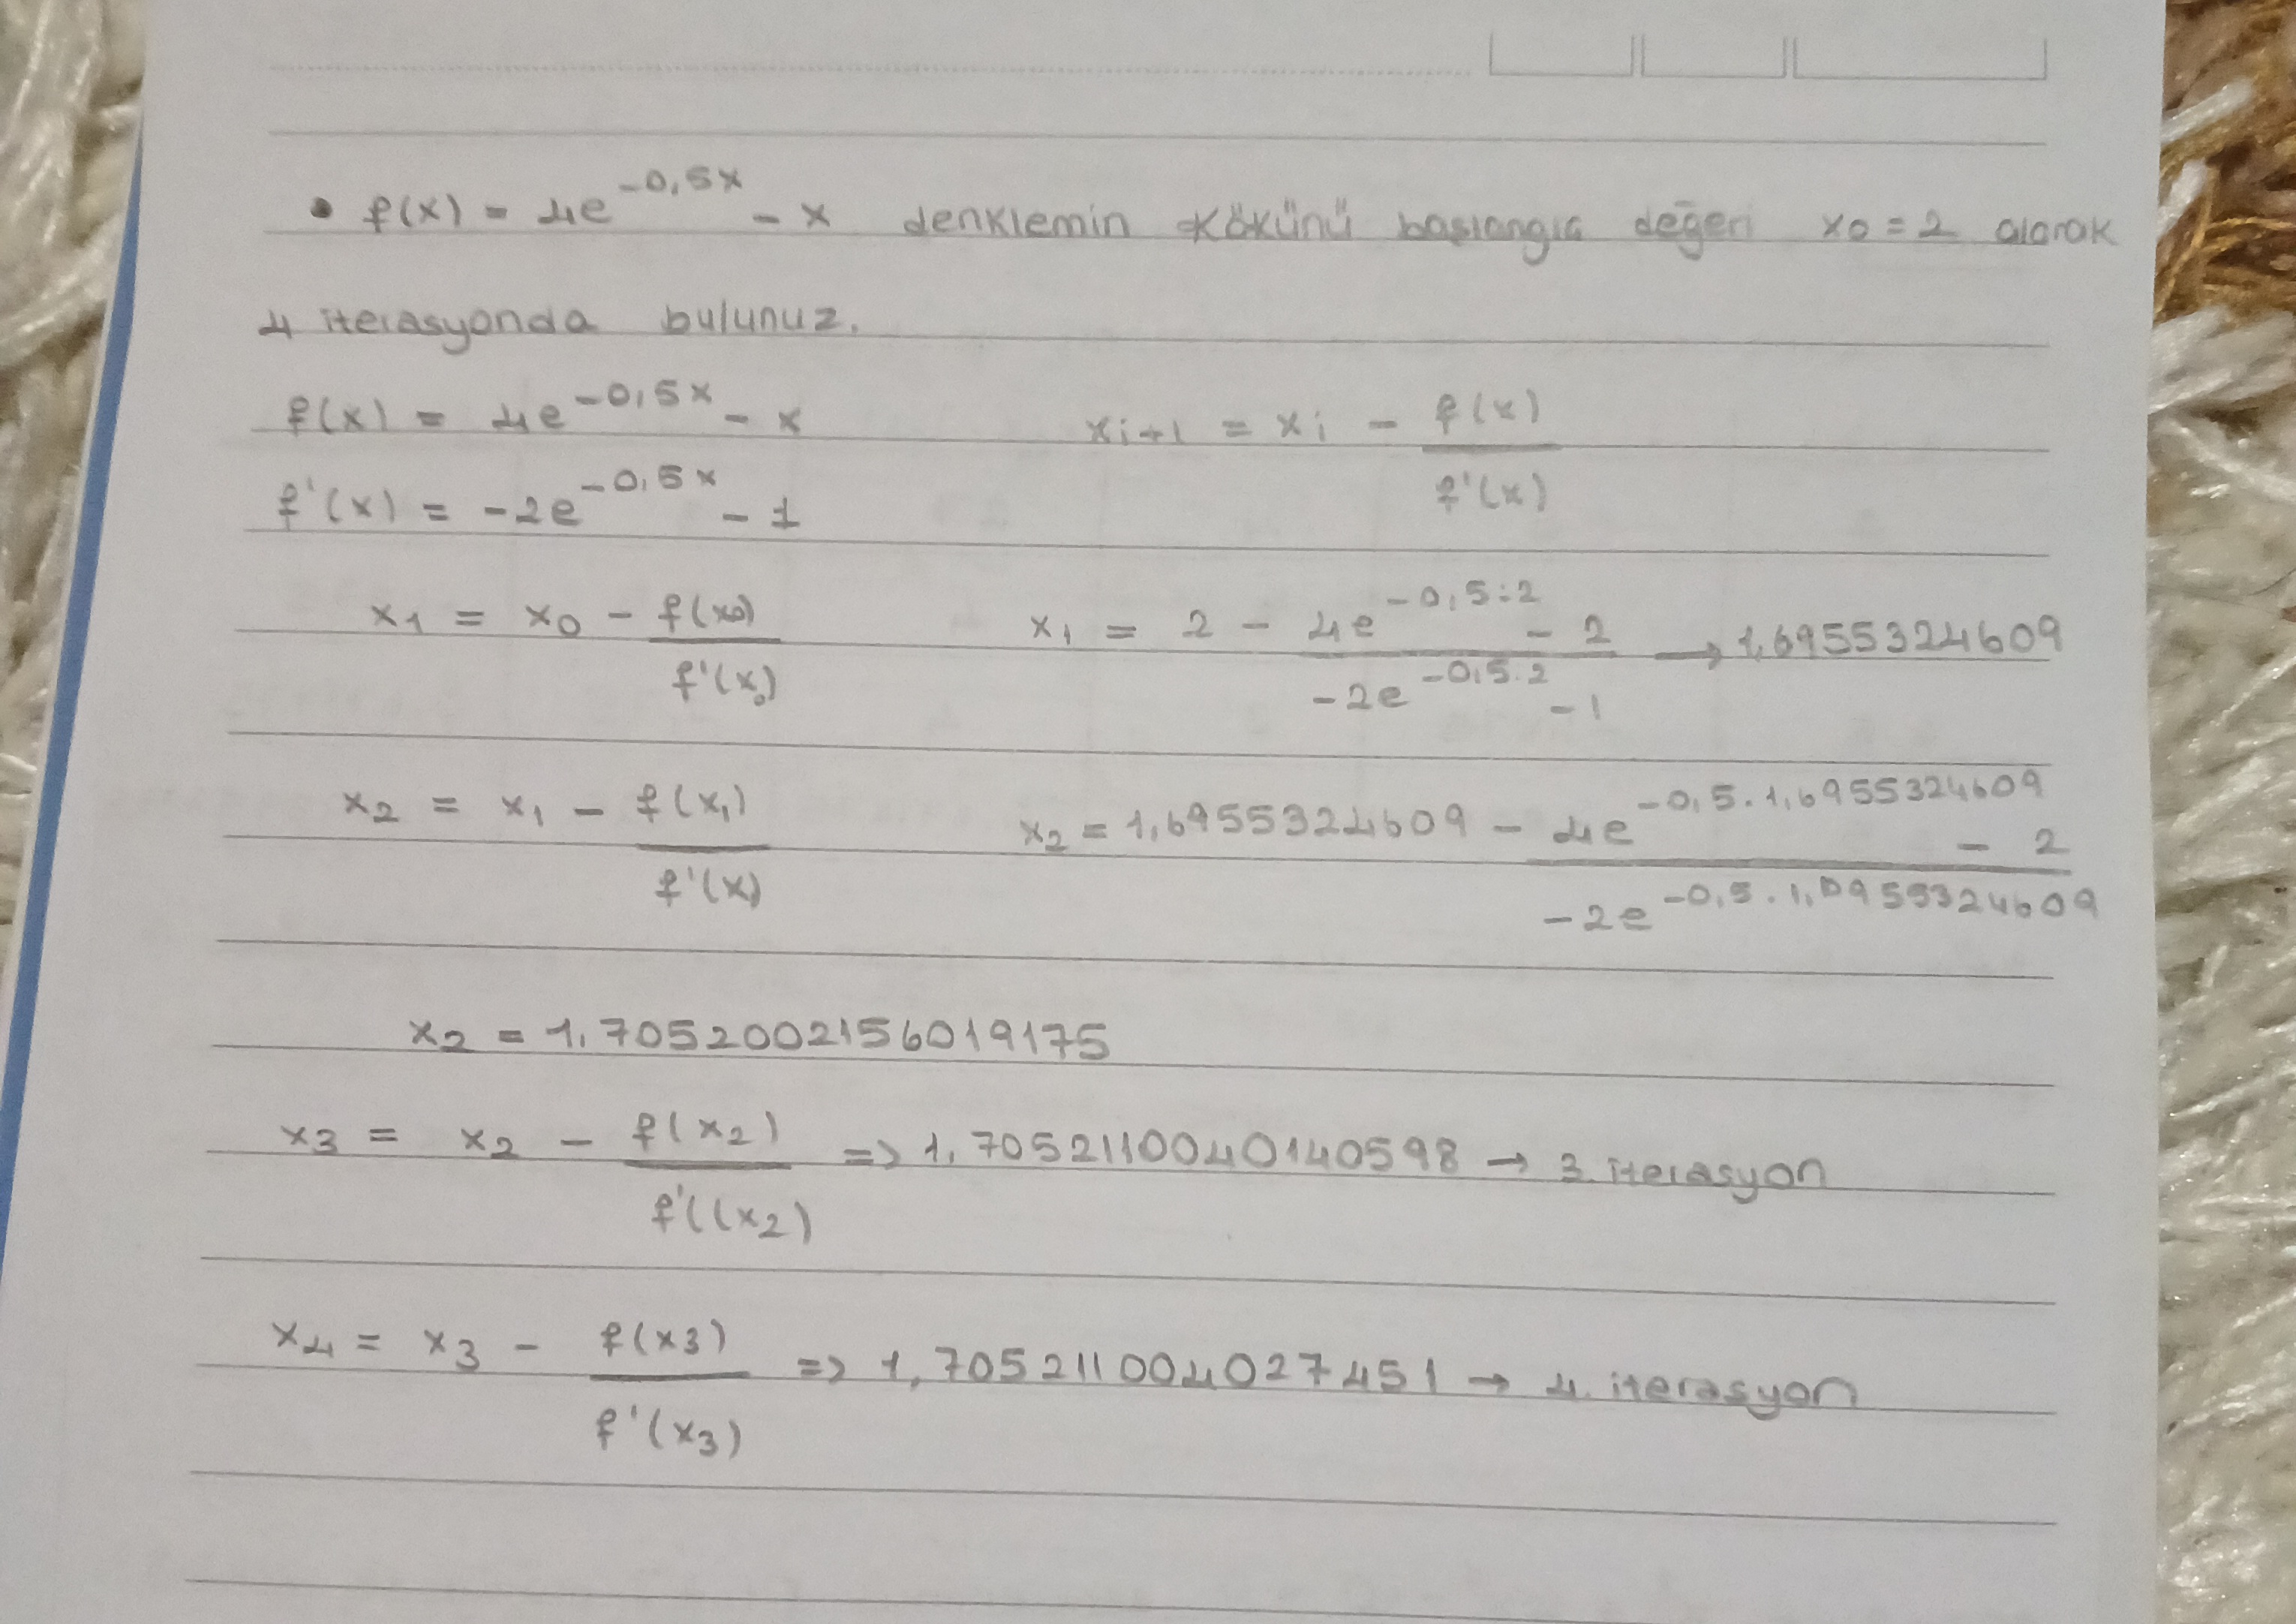 • f(x) = 4e^{-0,5x} - x denklemin kökünü başlangıç değeri x₀ = 2 alarak
4 iterasyonda bulunuz.
f(x) = 4e^{-0,5x} - x    x_{i+1} = x_i - f(x) / f'(x)
f'(x) = -2e^{-0,5x} - 1
x₁ = x₀ - f(x₀) / f'(x₀)    x₁ = 2 - (4e^{-0,5.2} - 2) / (-2e^{-0,5.2} - 1) → 1,6955324609
x₂ = x₁ - f(x₁) / f'(x₁)    x₂ = 1,6955324609 - (4e^{-0,5.1,6955324609} - 2) / (-2e^{-0,5.1,6955324609})
x₂ = 1,7052002156019175
x₃ = x₂ - f(x₂) / f'((x₂) => 1,7052110040140598 → 3. iterasyon
x₄ = x₃ - f(x₃) / f'(x₃) => 1,705211004027451 → 4. iterasyon